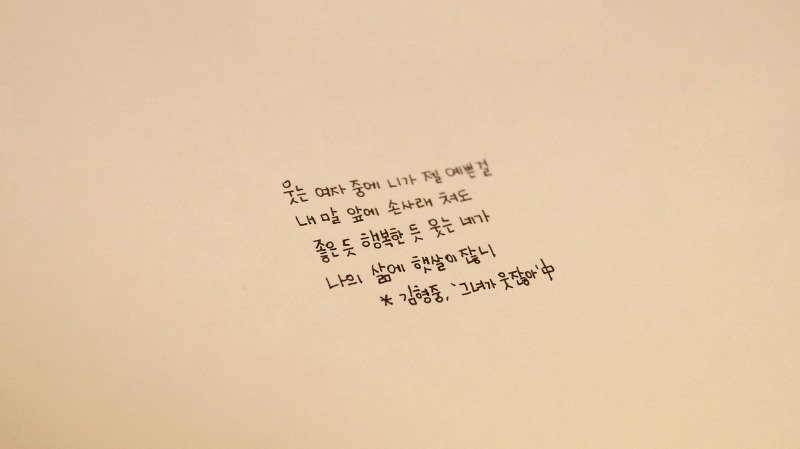 웃는 여자 중에 니가 젤 예쁜걸
내 말 앞에 손사래 쳐도
좋은 듯 행복한 듯 웃는 네가
나의 삶에 햇살이잖니
* 김형중, '그녀가 웃잖아' 中